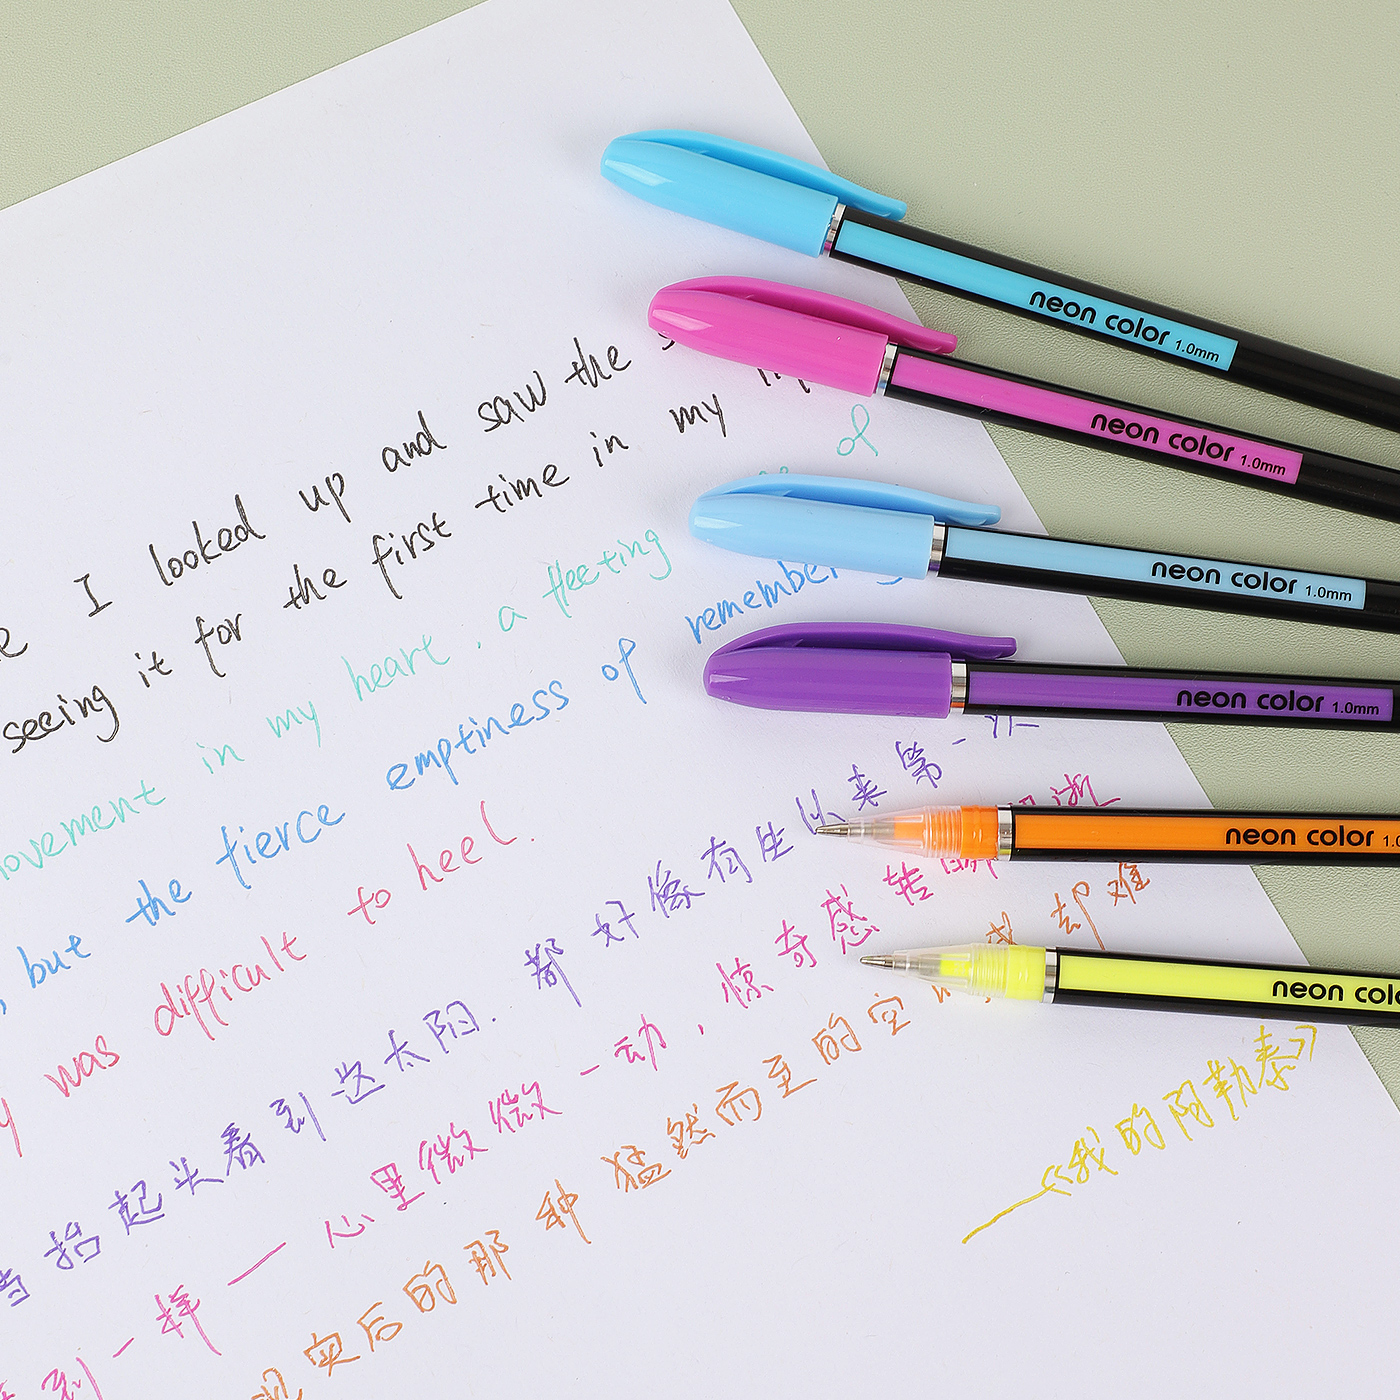 I looked up and saw the
seeing it for the first time in my
movement in my heart, a fleeting of
, but the fierce emptiness of remember
was difficult to heel.
当抬起头看到这太阳. 都好像有生以来第一次
看到一样 — 心里微微一动, 惊奇感转瞬即逝
现实后的那种猛然而至的空 我却难
——《我的阿勒泰》
neon color 1.0mm
neon color 1.0mm
neon color 1.0mm
neon color 1.0mm
neon color 1.0
neon colo